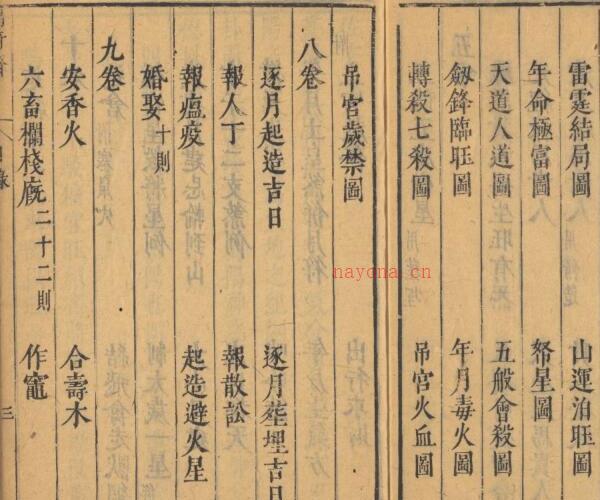 雷霆結局圖 山運泊㕵圖
年命極富圖 帑星圖
天道人道圖 五般會殺圖
劔鋒臨㕵圖 年月毒火圖
轉殺七殺圖 吊宮火血圖
吊宮歲禁圖
八卷
逐月起造吉日 逐月塟埋吉日
報人丁 報散訟
報瘟疫 起造避火星
婚娶十則
九卷
安香火 合壽木
六畜欄棧廐二十二則 作竈
目錄
三
nayona.cn